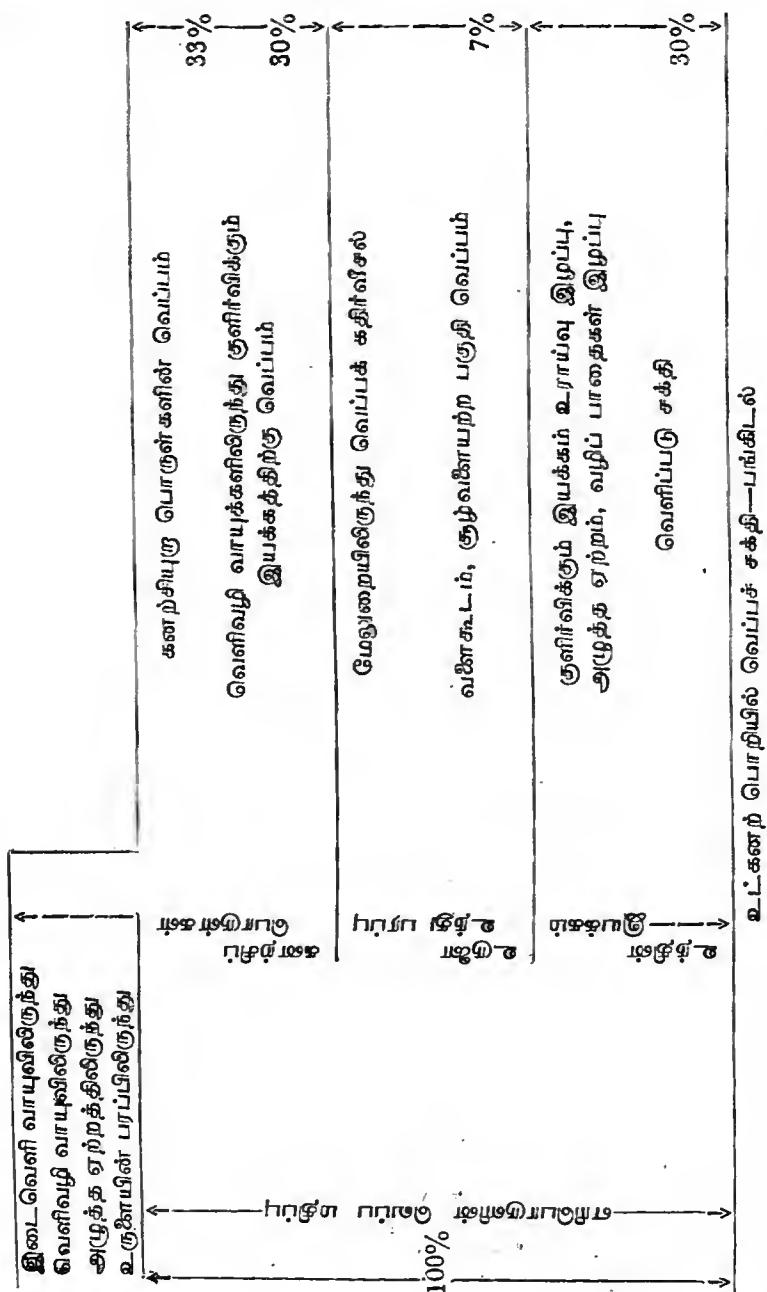 இடைவெளி வாயுவிலிருந்து
வெளிவழி வாயுவிலிருந்து
அழுத்த ஏற்றத்திலிருந்து
உருளையின் பரப்பிலிருந்து
100%
எரிபொருளின் வெப்ப மதிப்பு
கனற்சிப்
பொருள்கள்
உருளை
உந்து பரப்பு
உந்தின்
இயக்கம்
கனற்சியுறா பொருள்களின் வெப்பம்
33%
வெளிவழி வாயுக்களிலிருந்து குளிர்விக்கும்
இயக்கத்திற்கு வெப்பம்
30%
மேலுறையிலிருந்து வெப்பக் கதிர்வீசல்
வளைகூடம், சூழ்வளையற்ற பகுதி வெப்பம்
7%
குளிர்விக்கும் இயக்கம் உராய்வு இழப்பு,
அழுத்த ஏற்றம், வழிப் பாதைகள் இழப்பு
வெளிப்படு சக்தி
30%
உட்கனற் பொறியில் வெப்பச் சக்தி—பங்கிடல்